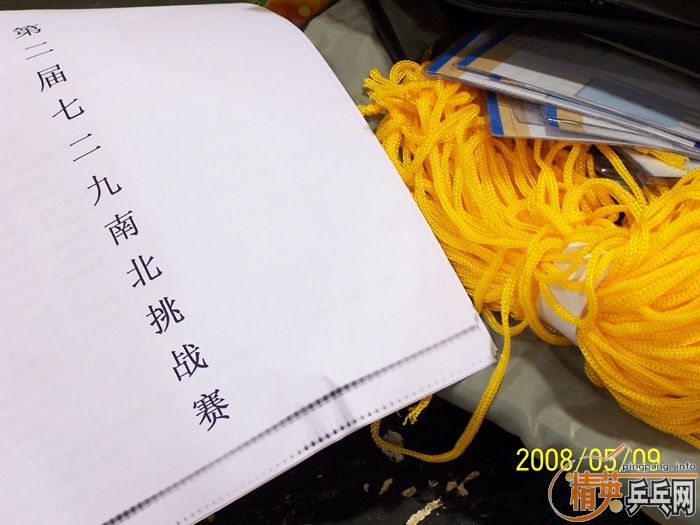 第二届七二九南北挑战赛
2008/05/09
pingpang.info
精英乒乓网